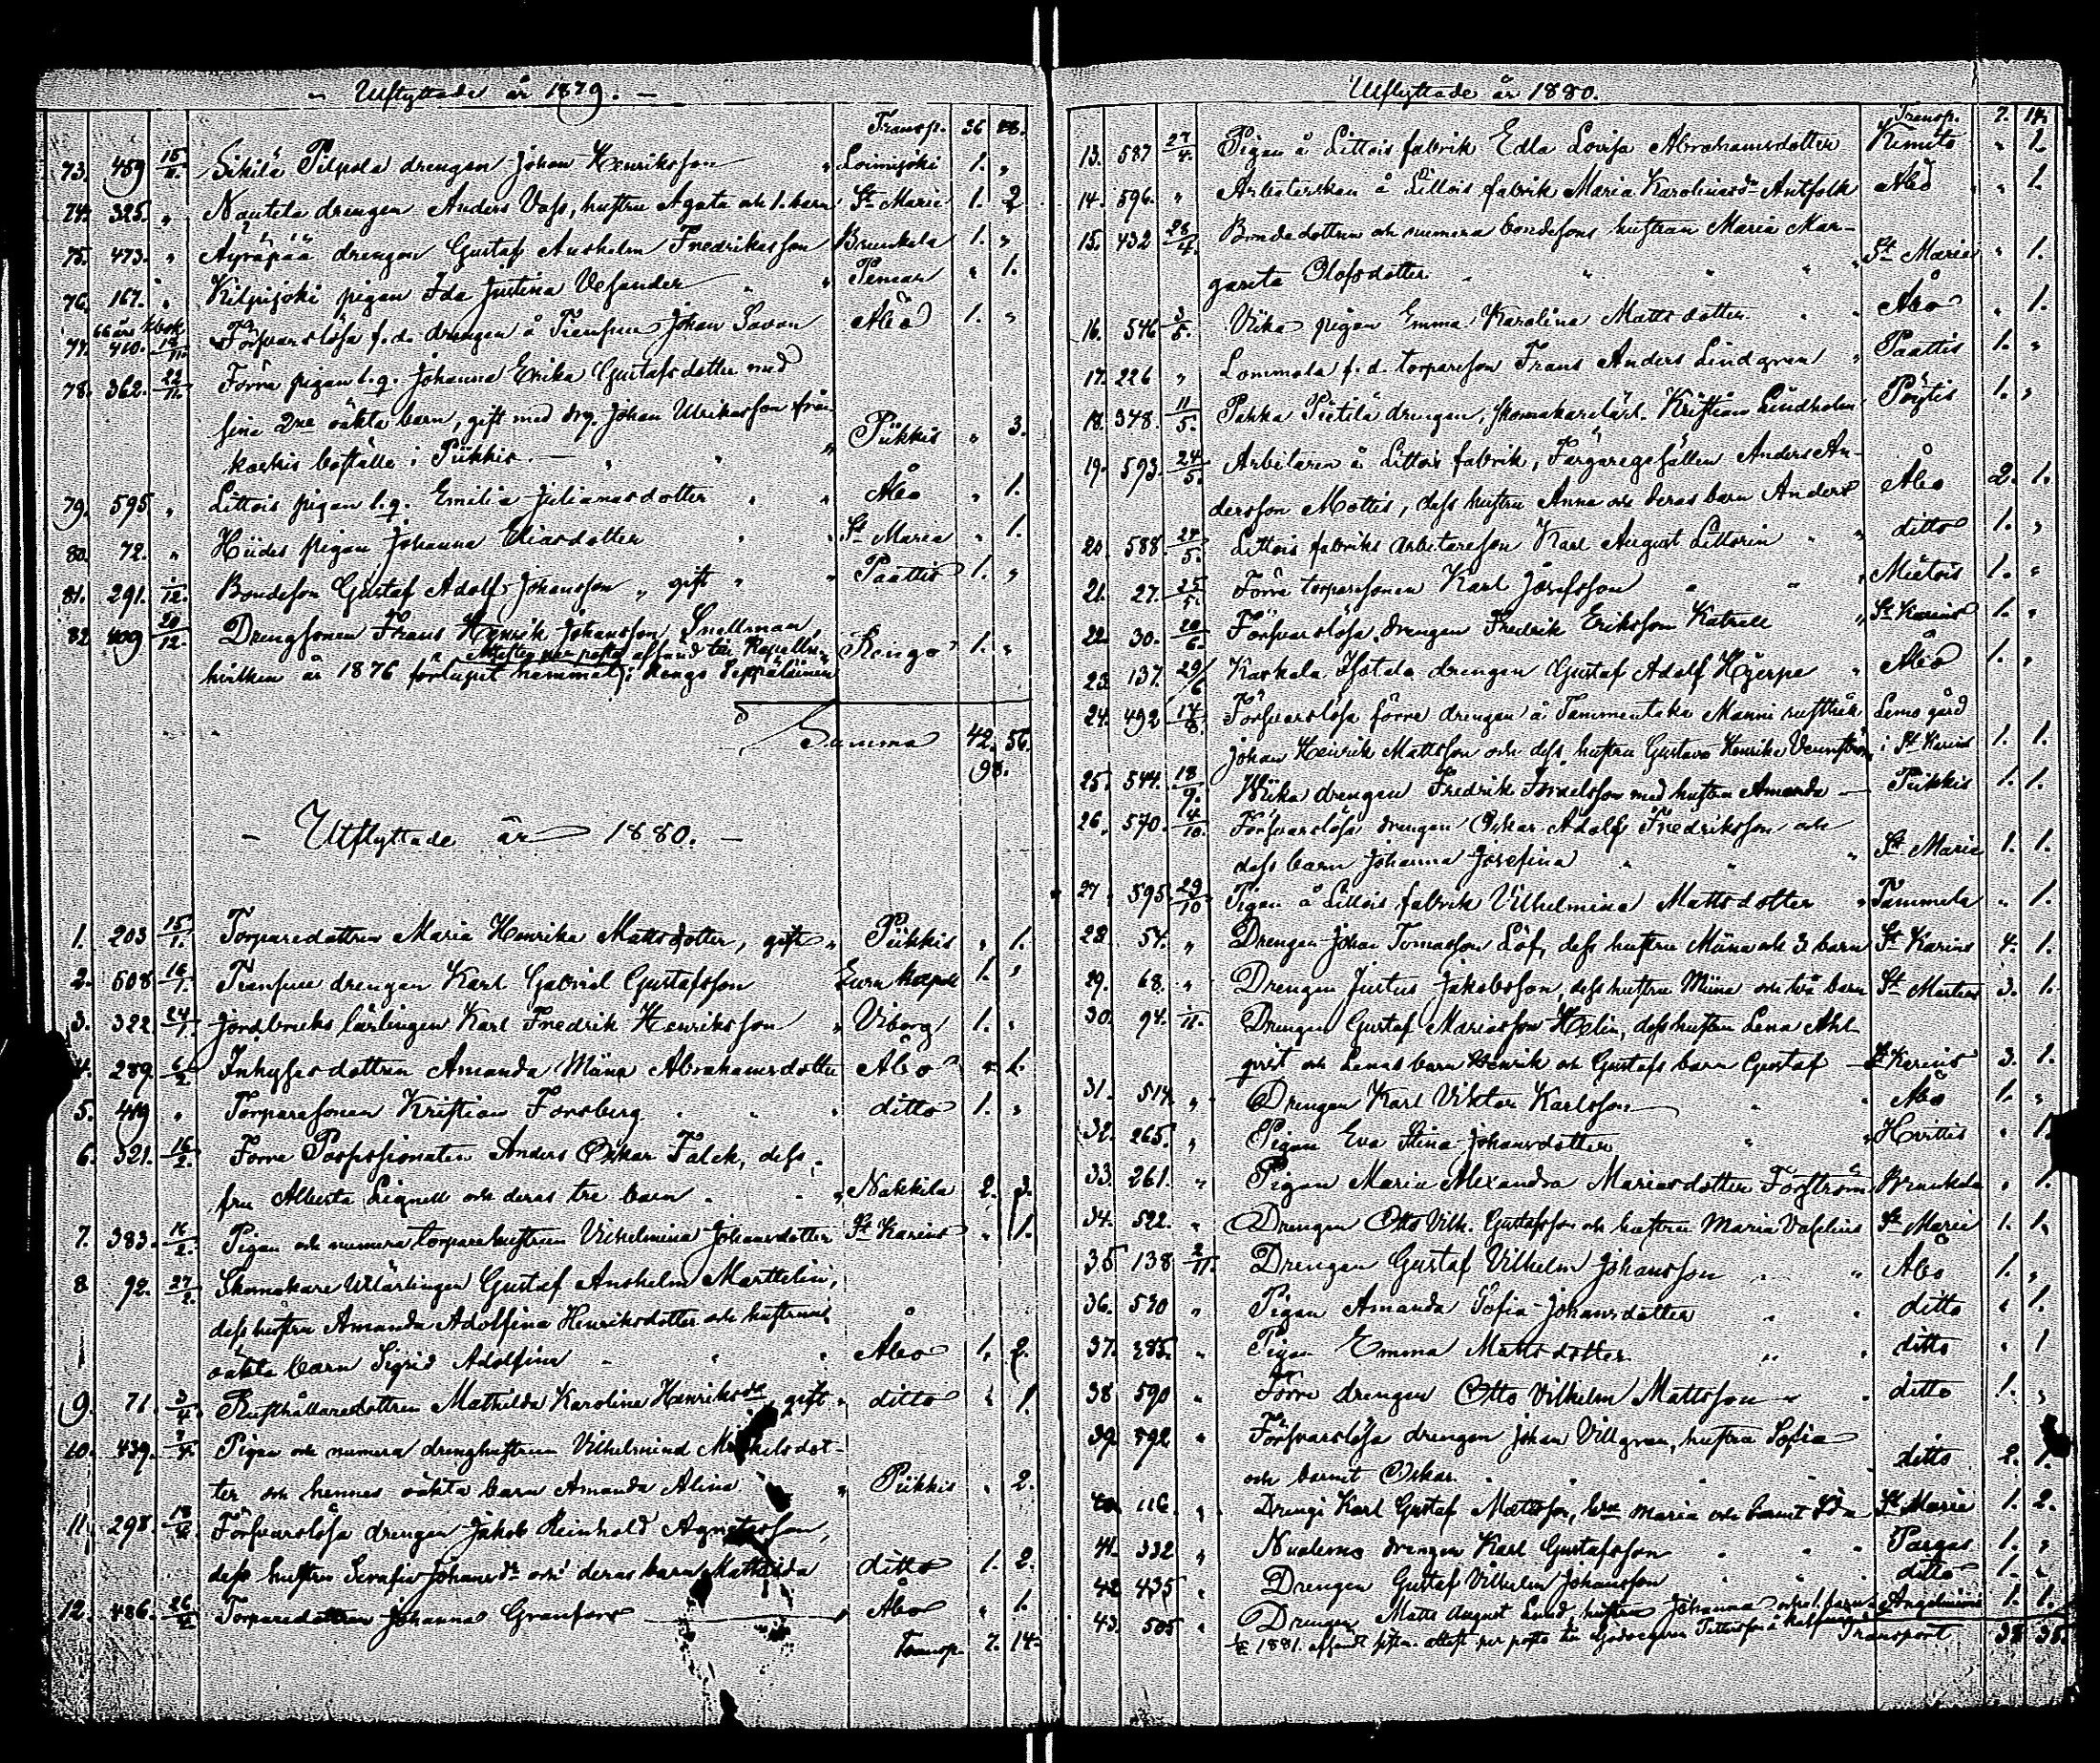 Utflyttade år 1879.
Transp. 36 48.
73. 459 15/11. Sikilä Pilpola drengen Johan Henriksson " Loimijoki 1. "
74. 325. " Nautela drengen Anders Vass, hustru Agata och 1. barn St Marie 1. 2
75. 473. " Äyräpää drengen Gustaf Anshelm Fredriksson Brunkala 1. "
76. 167. " Kilpijoki pigan Ida Justina Vesander " " Pemar " 1.
66 års kbok
77. 410. 18/11. Försvarslösa f.d. drengen å Tiensuu Johan Savon Åbo 1. "
78. 362. 22/11. Förra pigan l.q. Johanna Erika Gustafsdotter med
sina 2ne oäkta barn, gift med drg. Johan Ulriksson från
boställe i Piikkis. " " " Piikkis " 3.
79. 595 " Littois pigan l.q. Emilia Julianasdotter " " Åbo " 1.
80. 72. " Hiides pigan Johanna Eliasdotter " " St Maria " 1.
81. 291. 1/12. Bondeson Gustaf Adolf Johansson " gift " " Paattis 1. "
82 409 20/12. Drengsonen Frans Henrik Johansson Snellman,
hvilken år 1876 förlupit hemmet, Attesten per posto afsänd till Kapellan i Rengo Seppäläinen Rengo 1. "
Summa 42. 56.
98.
Utflyttade år 1880.
1. 203 15/1. Torparedottren Maria Henrika Mattsdotter, gift " Piikkis " 1.
2. 508 16/1. Tiensuu drengen Karl Gabriel Gustafsson Eura kapell 1. "
3. 322 24/1. Jordbruks lärlingen Karl Fredrik Henriksson " Viborg 1. "
4. 289. 6/2. Inhysesdottren Amanda Miina Abrahamsdotter Åbo " 1.
5. 419 " Torparesonen Kristian Forsberg " " " ditto 1. "
6. 321. 16/2. Förre Possessionaten Anders Oskar Falck, dess
fru Alberta Lignell och deras tre barn " " " Nakkila 2. 3.
7. 383. 16/2. Pigan och numera torparehustrun Vilhelmina Johansdotter St Karins " 1.
8 92. 27/2. Skomakare lärlingen Gustaf Anshelm Marttelin,
dess hustru Amanda Adolfina Henriksdotter och hustruns
oäkta barn Sigrid Adolfina " " " Åbo 1. 2.
9. 71. 3/4. Rusthållaredottren Mathilda Karolina Henriksdr, gift " ditto " 1.
10. 439. 7/4. Pigan och numera drenghustrun Vilhelmina Mickelsdot-
ter och hennes oäkta barn Amanda Alina " Piikkis " 2.
11. 298 18/4. Försvarslösa drengen Jakob Reinhold Agnetasson,
dess hustru Serafia Johansdr och deras barn Mathilda ditto 1. 2.
12. 486. 26/4. Torparedottren Johanna Granfors " Åbo " 1.
Transp. 7. 14.
Utflyttade år 1880.
Transp. 7. 14.
13. 587 27/4. Pigan å Littois fabrik Edla Lovisa Abrahamsdotter Kimito " 1.
14. 596. " Arbeterskan å Littois fabrik Maria Karolinasdr Antfolk Åbo " 1.
15. 432 28/4. Bondedottren och numera bondesons hustrun Maria Mar-
gareta Olofsdotter " " " " St Marie " 1.
16. 546 3/5. Vika pigan Emma Karolina Mattsdotter " " Åbo " 1.
17. 226 " Lommola f.d. torpareson Frans Anders Lindgren " Paattis 1. "
18. 348. 11/5. Pahka Pietilä drengen, skomakarelärl. Kristian Lindholm Pöytis 1. "
19. 593. 24/5. Arbetaren å Littois fabrik, Färgaregesällen Anders An-
dersson Mottis, dess hustru Anna och deras barn Anders Åbo 2. 1.
20. 588 24/5. Littois fabriks arbetareson Karl August Littorin " " ditto 1. "
21. 27. 25/5. Förre torparesonen Karl Josefsson " " " Mietois 1. "
22. 30. 20/6. Försvarslösa drengen Fredrik Eriksson Katrell " St Karins 1. "
23. 137. 29/6 Kaskala Isotalo drengen Gustaf Adolf Hjerpe " Åbo 1. "
24. 492 14/8. Försvarslösa förre drengen å Tammentaka Manni rusthåll Lemo gård
Johan Henrik Mattsson och dess hustru Gustava Henrika Vennström i St Karins 1. 1.
25. 544. 18/9. Wika drengen Fredrik Israelsson med hustru Amanda — Piikkis 1. 1.
26. 570. 14/10. Försvarslösa drengen Oskar Adolf Fredriksson och
dess barn Johanna Josefina " " " St Marie 1. 1.
27. 595. 29/10. Pigan å Littois fabrik Vilhelmina Mattsdotter " Tammela " 1.
28. 54. " Drengen Johan Tomasson Löf, dess hustru Miina och 3 barn St Karins 4. 1.
29. 68. " Drengen Justus Jakobsson, dess hustru Miina och två barn St Mårtens 3. 1.
30. 94. 1/11. Drengen Gustaf Mariasson Helin, dess hustru Lena Ahl-
qvist och Lenas barn Henrik och Gustafs barn Gustaf — St Karins 3. 1.
31. 514. " Drengen Karl Viktor Karlsson " " Åbo 1. "
32. 265. " Pigan Eva Stina Johansdotter " " Hvittis " 1.
33. 261. " Pigan Maria Alexandra Mariasdotter Forsström Brunkala " 1.
34. 522. " Drengen Otto Vilh. Gustafsson och hustru Maria Vaselius St Marie 1. 1.
35 138 2/11. Drengen Gustaf Vilhelm Johansson " " Åbo 1. "
36. 530 " Pigan Amanda Sofia Johansdotter " " ditto " 1.
37. 285. " Pigan Emma Mattsdotter " " ditto " 1
38 590 " Förre drengen Otto Vilhelm Mattsson " " ditto 1. "
39. 592 " Försvarslösa drengen Johan Villgren, hustru Sofia
och barnet Oskar " " " " ditto 2. 1.
40. 116. " Drengen Karl Gustaf Mattsson, hru Maria och barnet Ida St Marie 1. 2.
41. 332 " Nuolemo drengen Karl Gustafsson " " " Pargas 1. "
42 435 " Drengen Gustaf Vilhelm Johansson " " " ditto 1. "
43. 505 " Drengen Matts August Lund, hustru Johanna och 1. barn Angelniemi 1. 1.
1881. afsändt attest per posto till Godsegaren Pettersson å Transport 38 35.